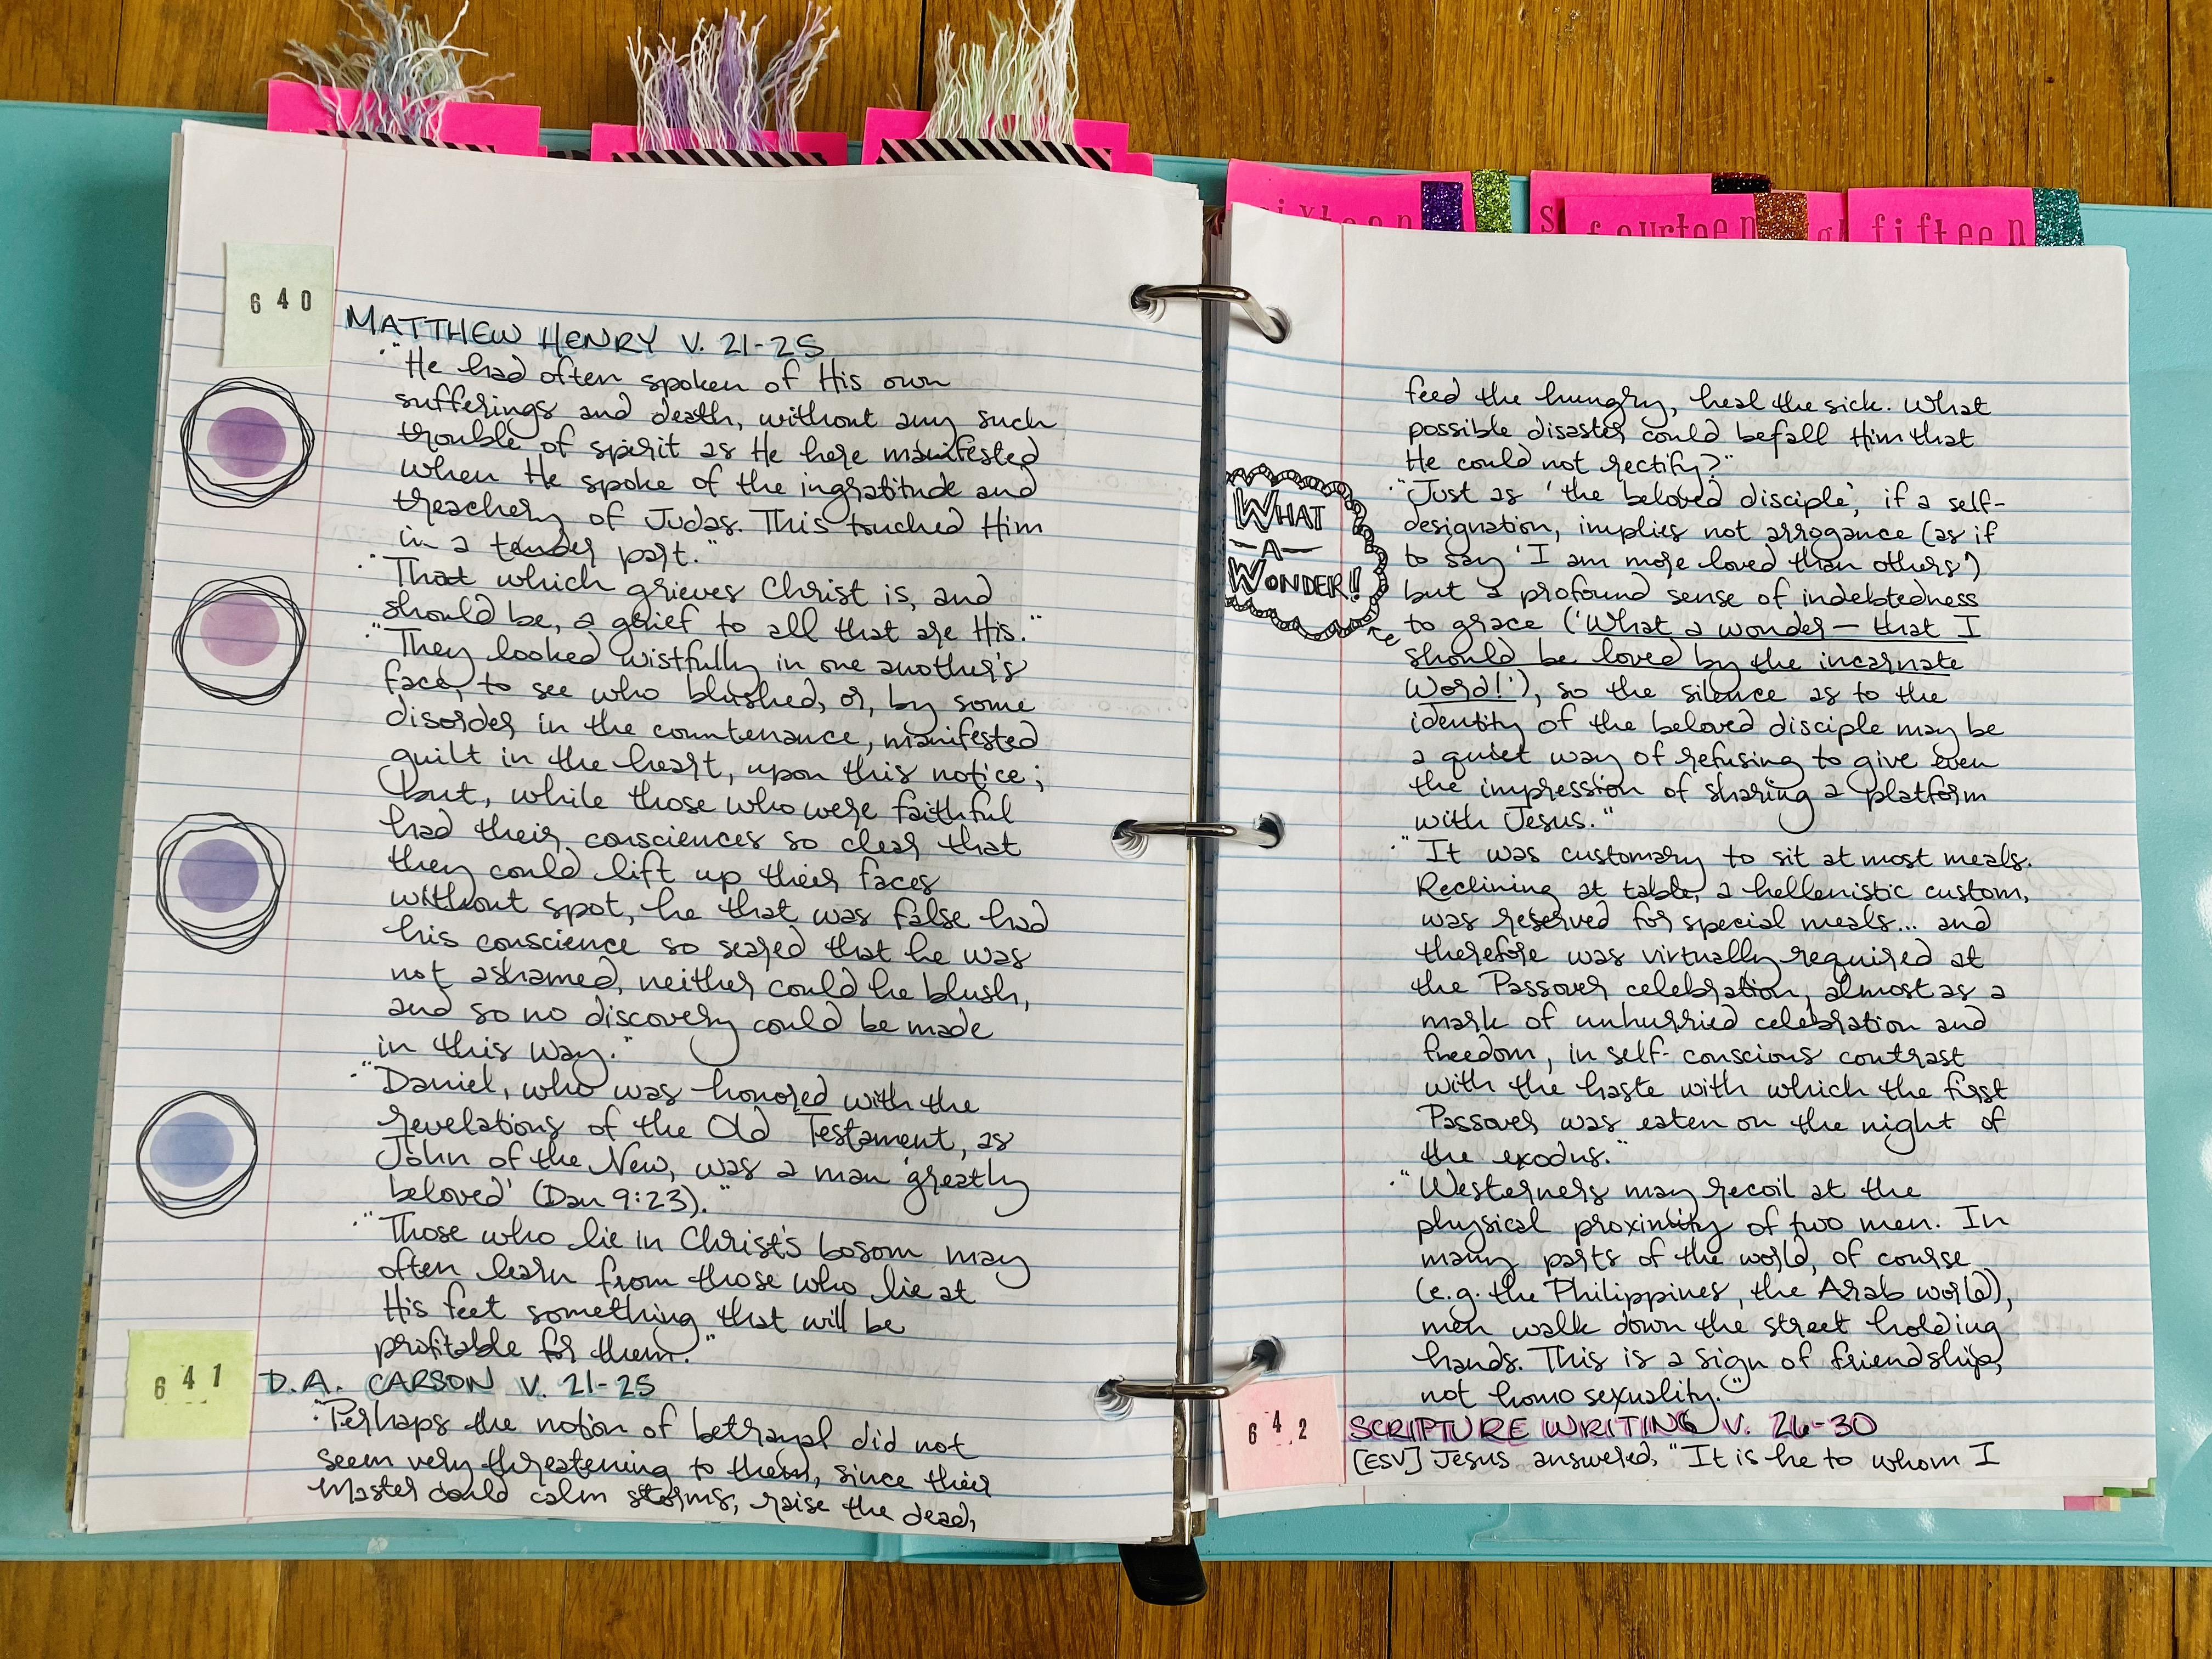 640
MATTHEW HENRY V. 21-25
·"He had often spoken of His own
sufferings and death, without any such
trouble of spirit as He here manifested
when He spoke of the ingratitude and
treachery of Judas. This touched Him
in a tender part."
·"That which grieves Christ is, and
should be, a grief to all that are His."
·"They looked wistfully in one another's
face, to see who blushed, or, by some
disorder in the countenance, manifested
guilt in the heart, upon this notice;
but, while those who were faithful
had their consciences so clear that
they could lift up their faces
without spot, he that was false had
his conscience so seared that he was
not ashamed, neither could he blush,
and so no discovery could be made
in this way."
·"Daniel, who was honored with the
revelations of the Old Testament, as
John of the New, was a man 'greatly
beloved' (Dan 9:23)."
·"Those who lie in Christ's bosom may
often learn from those who lie at
His feet something that will be
profitable for them."
641
D.A. CARSON V. 21-25
·"Perhaps the notion of betrayal did not
seem very threatening to them, since their
Master could calm storms, raise the dead,
sixteen
fourteen
fifteen
feed the hungry, heal the sick. What
possible disaster could befall Him that
He could not rectify?"
WHAT
-A-
WONDER!
·"Just as 'the beloved disciple', if a self-
designation, implies not arrogance (as if
to say 'I am more loved than others')
but a profound sense of indebtedness
to grace ('What a wonder — that I
should be loved by the incarnate
Word!'), so the silence as to the
identity of the beloved disciple may be
a quiet way of refusing to give even
the impression of sharing a platform
with Jesus."
·"It was customary to sit at most meals.
Reclining at table, a hellenistic custom,
was reserved for special meals... and
therefore was virtually required at
the Passover celebration, almost as a
mark of unhurried celebration and
freedom, in self-conscious contrast
with the haste with which the first
Passover was eaten on the night of
the exodus."
·"Westerners may recoil at the
physical proximity of two men. In
many parts of the world, of course
(e.g. the Philippines, the Arab world),
men walk down the street holding
hands. This is a sign of friendship,
not homosexuality."
642
SCRIPTURE WRITING V. 26-30
[ESV] Jesus answered, "It is he to whom I